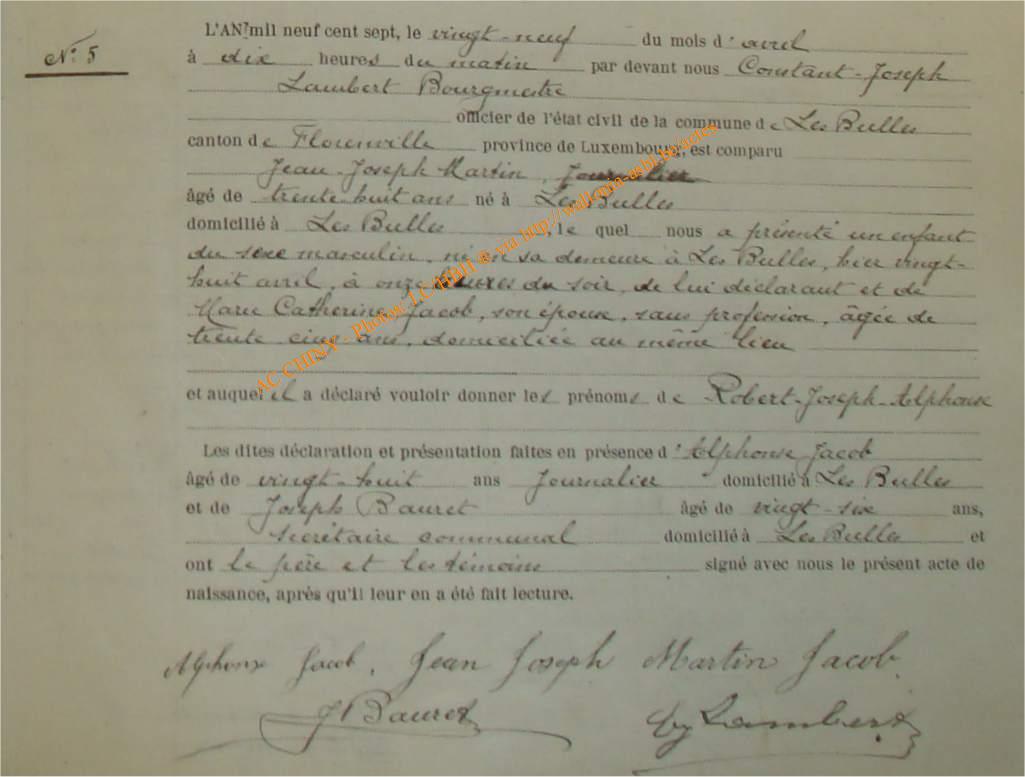 L'AN mil neuf cent sept, le vingt-neuf du mois d'avril
N° 5
à dix heures du matin par devant nous Constant-Joseph
Lambert Bourgmestre
officier de l'état civil de la commune de Les Bulles
canton de Florenville province de Luxembourg, est comparu
Jean-Joseph Martin, Journalier
âgé de trente-huit ans né à Les Bulles
domicilié à Les Bulles, le quel nous a présenté un enfant
du sexe masculin, né en sa demeure à Les Bulles, hier vingt-
huit avril, à onze heures du soir, de lui déclarant et de
Marie Catherine Jacob, son épouse, sans profession, âgée de
trente cinq ans, domiciliée au même lieu
et auquel il a déclaré vouloir donner les prénoms de Robert-Joseph-Alphonse
Les dites déclaration et présentation faites en présence d'Alphonse Jacob
âgé de vingt-huit ans Journalier domicilié à Les Bulles
et de Joseph Bauret âgé de vingt-six ans,
secrétaire communal domicilié à Les Bulles et
ont le père et les témoins signé avec nous le présent acte de
naissance, après qu'il leur en a été fait lecture.
Alphonse Jacob. Jean Joseph Martin Jacob.
J Bauret Lambert
AC CHINY - Photos: LC-BBH ® via http://wallonia-asbl.be/actes